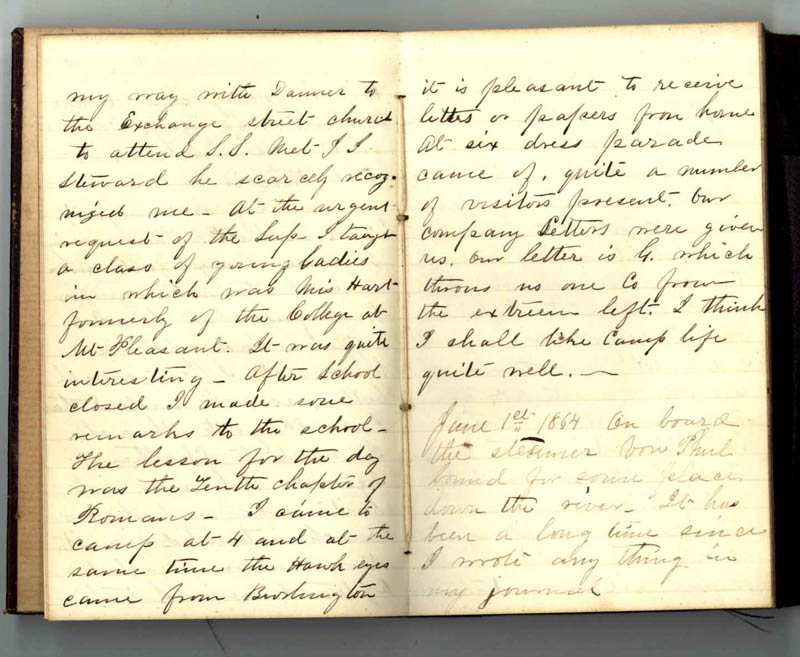 my way with Danner to
the Exchange street church
to attend S.S. Met J I
Steward he scarcely recog-
nized me - At the urgent
request of the Sup I taught
a class of young Ladies
in which was Miss Hart
formerly of the College at
Mt Pleasant. It was quite
interesting - After School
closed I made some
remarks to the school -
The lesson for the day
was the Tenth chapter of
Romans - I came to
camp at 4 and at the
same time the Hawk eyes
came from Burlington
it is pleasant to receive
letters or papers from home
At six dress parade
came of, quite a number
of visitors present. Our
company Letters were given
us. Our letter is G. which
throws us one Co from
the extreem left. I think
I shall like Camp life
quite well. -
June 1st 1864 On board
the steamer Von Phul
bound for some place
down the river - It has
been a long time since
I wrote any thing in
my journal